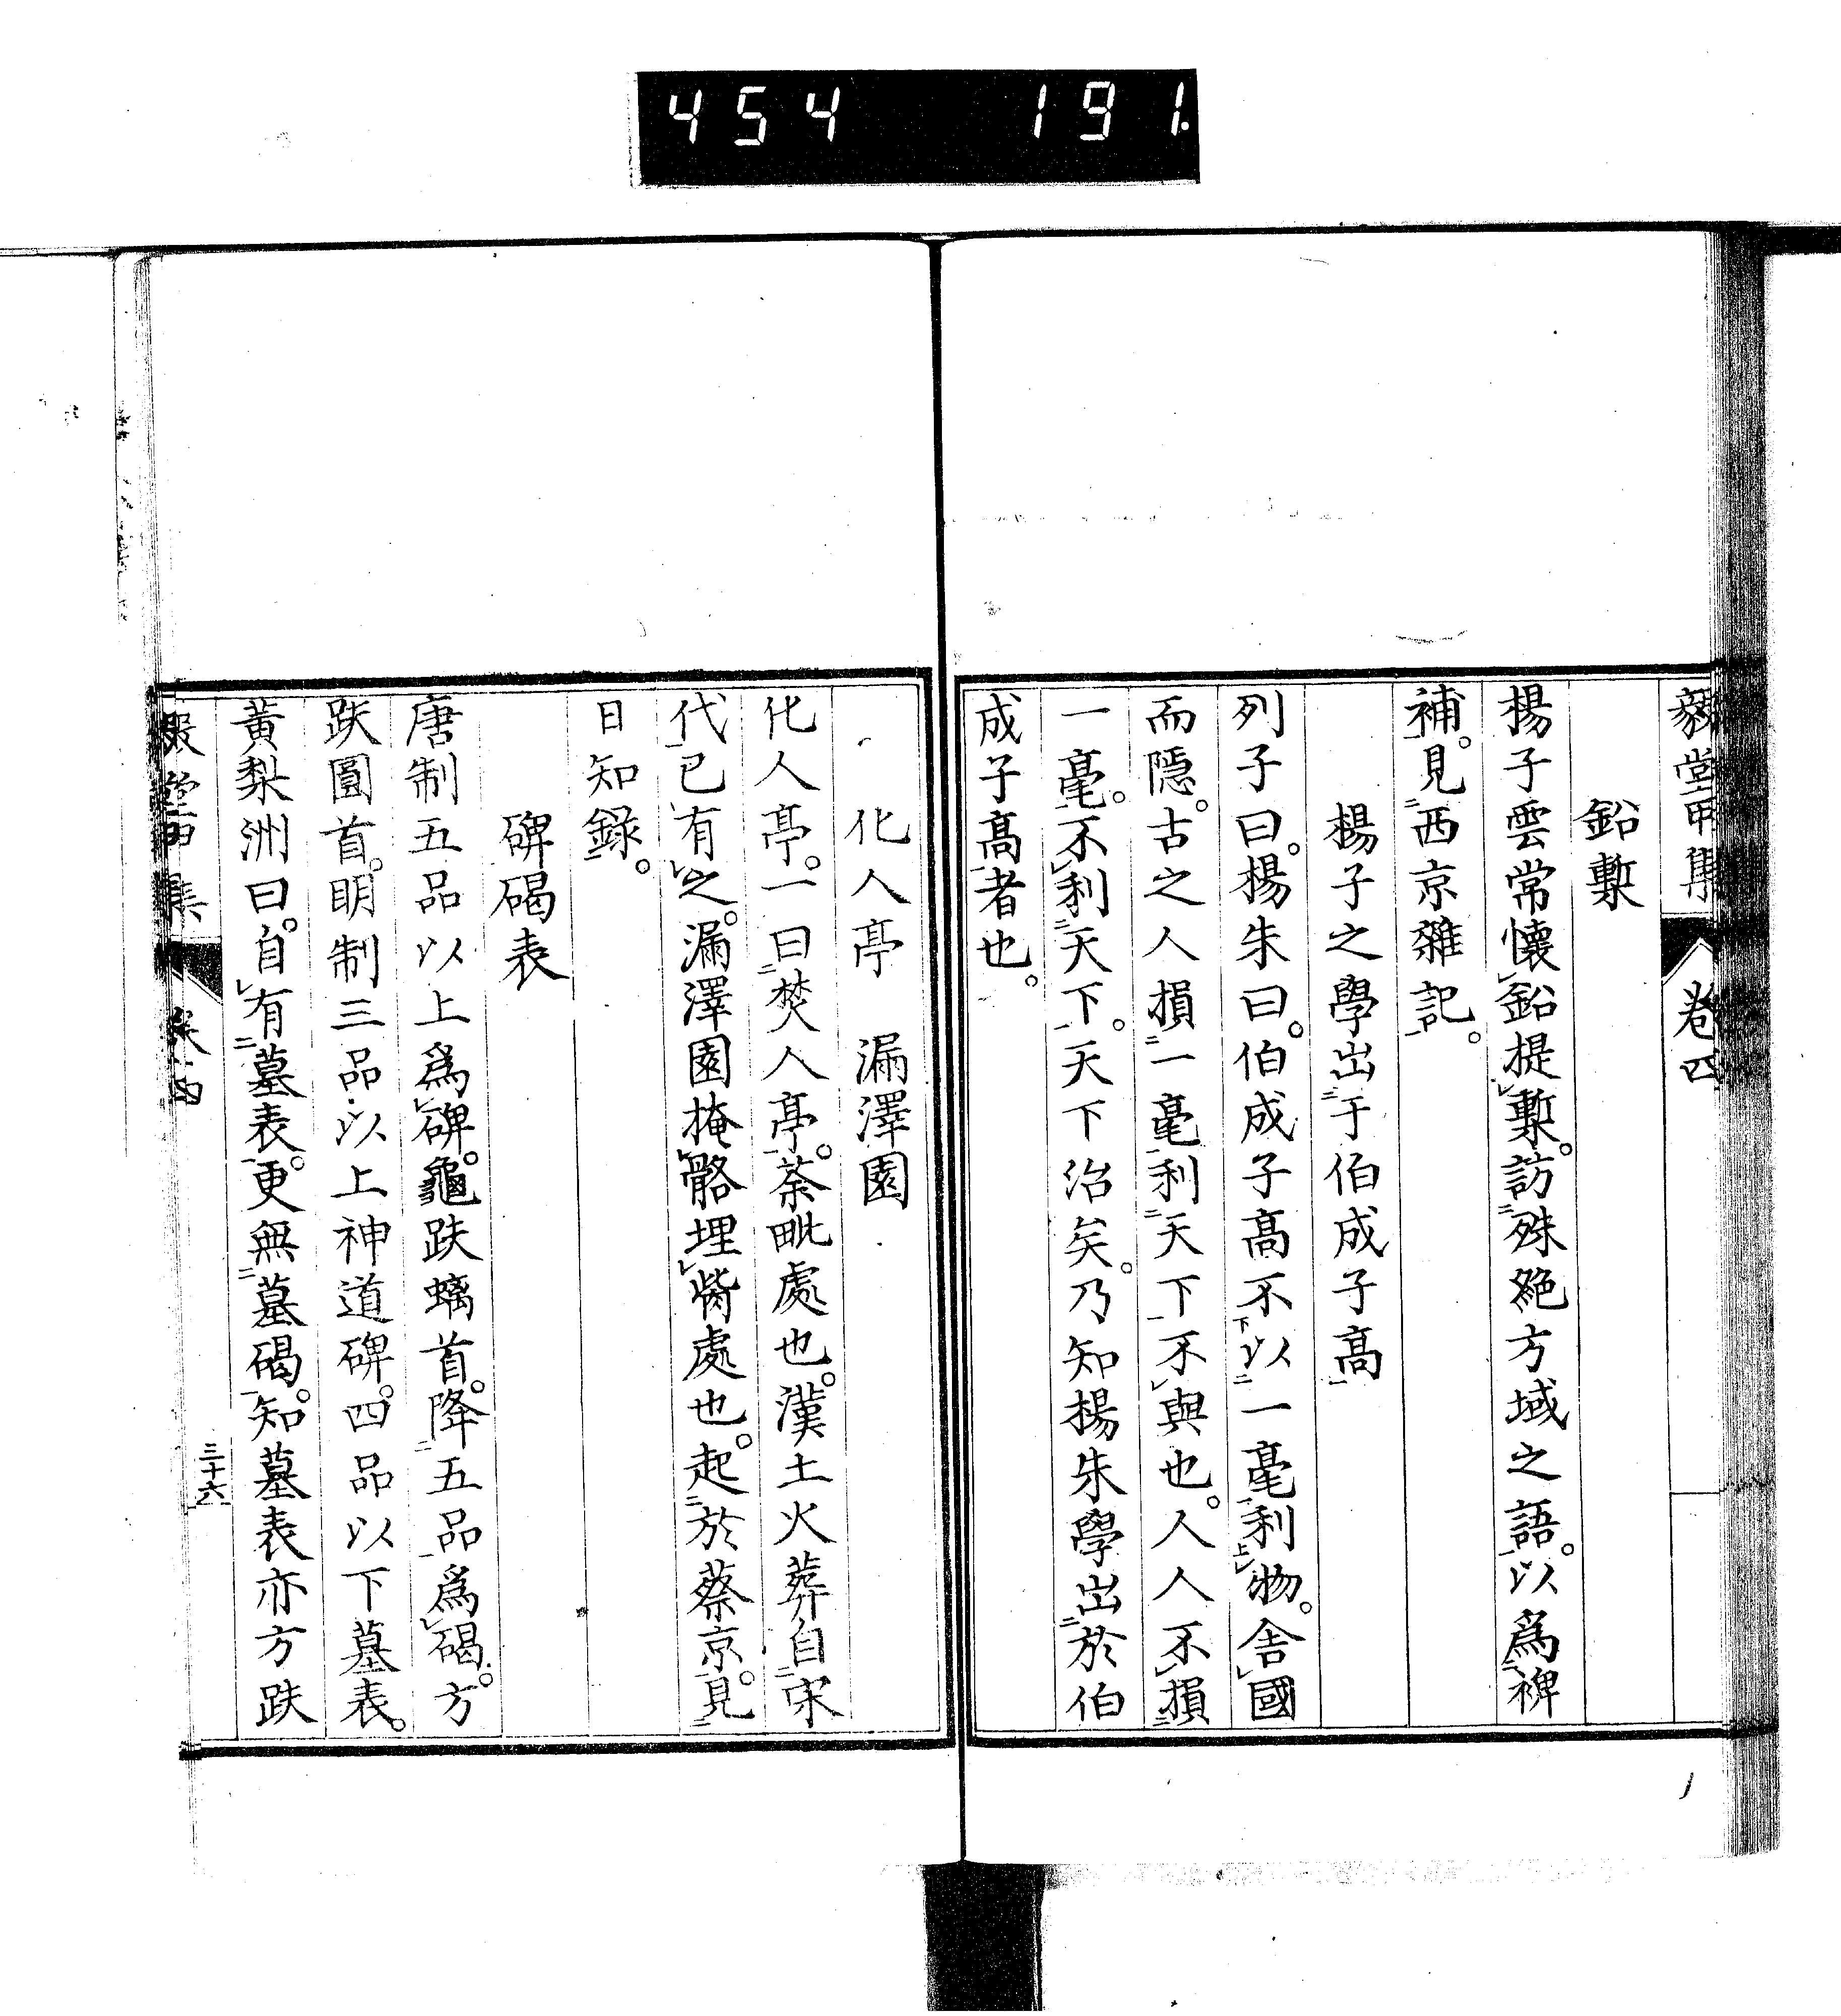 454 191.
毅堂甲集 卷四
鉛槧
揚子雲常懷鉛提槧。訪殊絕方域之語。以爲裨
補。見西京雜記。
楊子之學出于伯成子高
列子曰。楊朱曰。伯成子高不以一毫利物。舍國
而隱。古之人損一毫利天下不與也。人人不損
一毫。不利天下。天下治矣。乃知楊朱學出於伯
成子高者也。
化人亭 漏澤園
化人亭。一曰焚人亭。荼毗處也。漢土火葬自宋
代已有之。漏澤園掩骼埋胔處也。起於蔡京。見
日知錄。
碑碣表
唐制五品以上爲碑。龜趺螭首。降五品爲碣。方
趺圓首。明制三品以上神道碑。四品以下墓表。
黃梨洲曰。自有墓表。更無墓碣。知墓表亦方趺
三十六